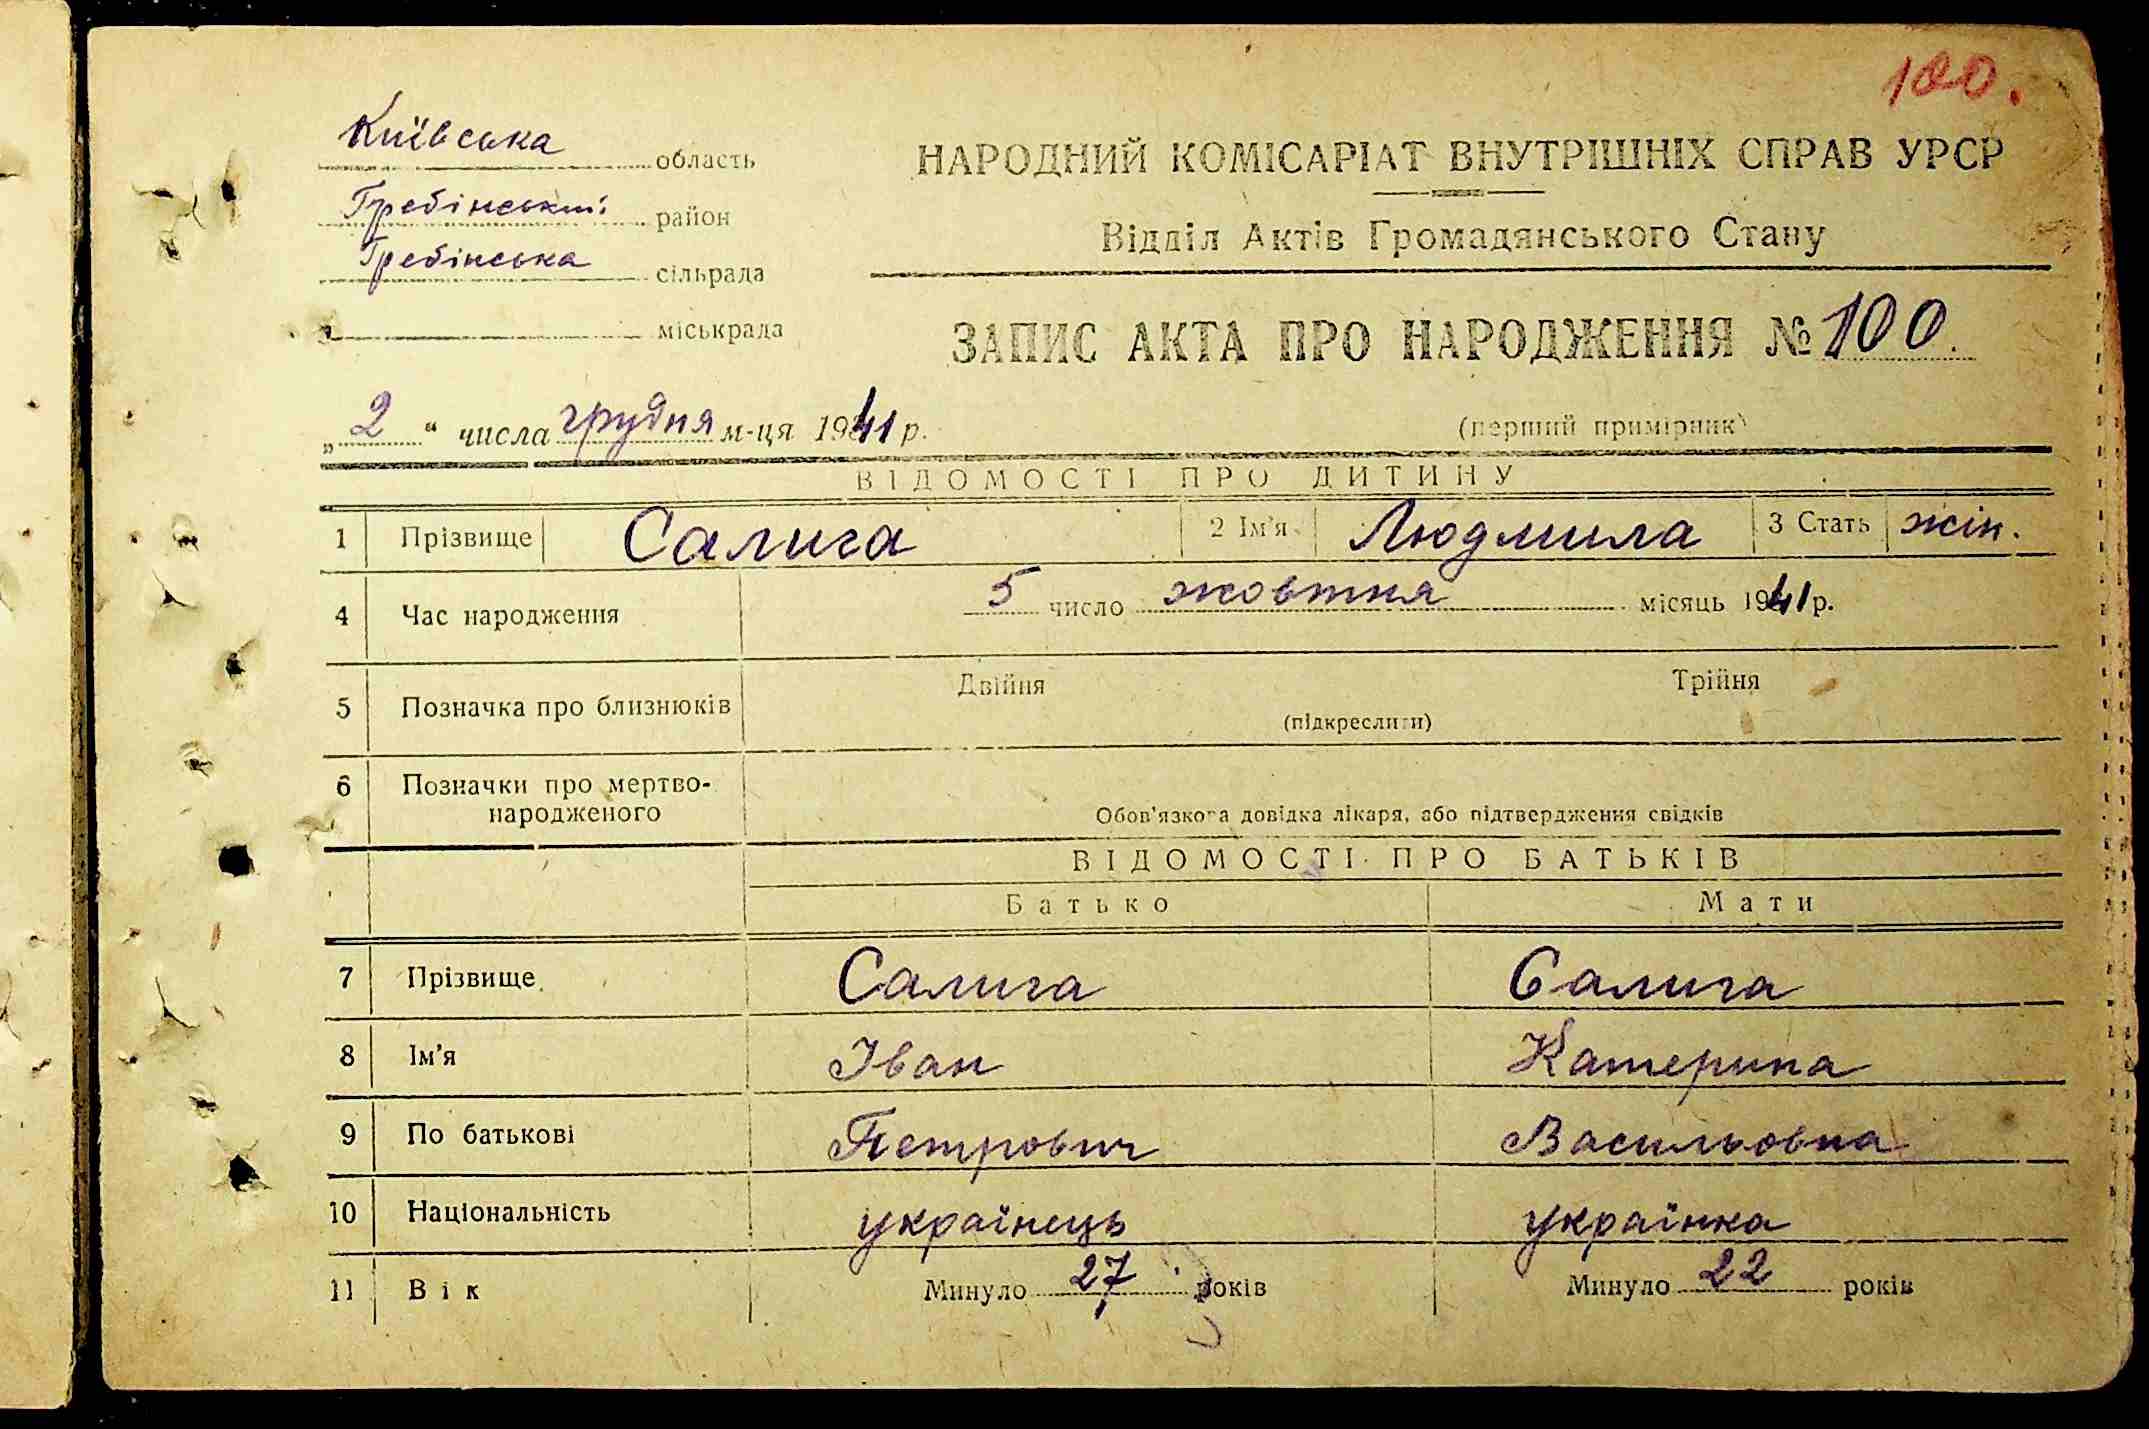 100.
Київська область
Гребінський район
Гребінська сільрада
міськрада
НАРОДНИЙ КОМІСАРІАТ ВНУТРІШНІХ СПРАВ УРСР
Відділ Актів Громадянського Стану
ЗАПИС АКТА ПРО НАРОДЖЕННЯ № 100.
„ 2 “ числа грудня м-ця 1941 р.
(перший примірник)
ВІДОМОСТІ ПРО ДИТИНУ
1 Прізвище Салига 2 Ім'я Людмила 3 Стать жін.
4 Час народження 5 число жовтня місяць 1941 р.
5 Позначка про близнюків Двійня Трійня
(підкреслити)
6 Позначки про мертво-
народженого Обов'язкова довідка лікаря, або підтвердження свідків
ВІДОМОСТІ ПРО БАТЬКІВ
Батько Мати
7 Прізвище Салига Салига
8 Ім'я Іван Катерина
9 По батькові Петрович Васильовна
10 Національність українець українка
11 Вік Минуло 27 років Минуло 22 років